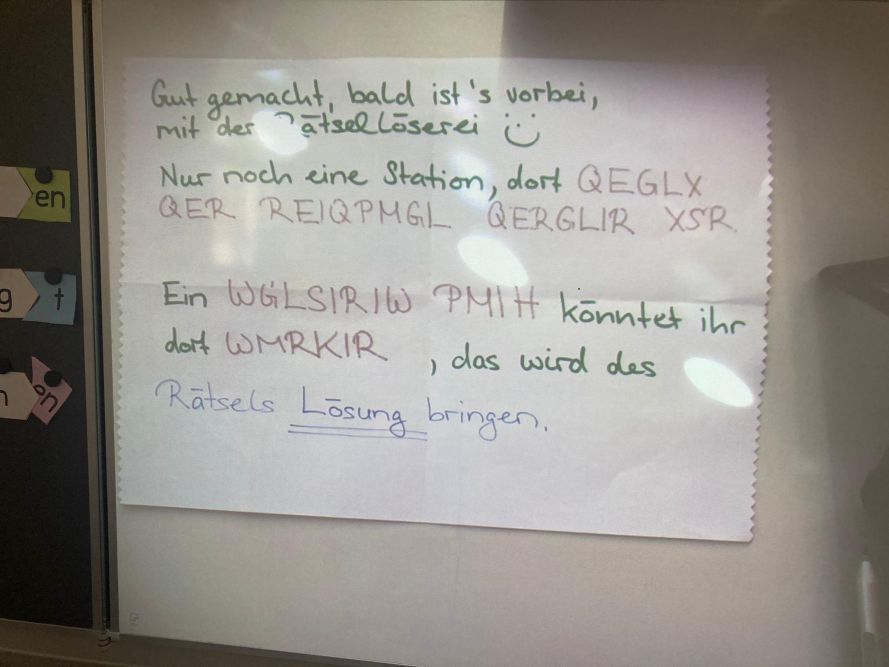 Gut gemacht, bald ist's vorbei,
mit der Rätsellöserei
Nur noch eine Station, dort QEGLX
QER REIQPMGL QERGLIR XSR.
Ein WGLSIRIW PMIH könntet ihr
dort WMRKIR , das wird des
Rätsels Lösung bringen.
en
g t
n en